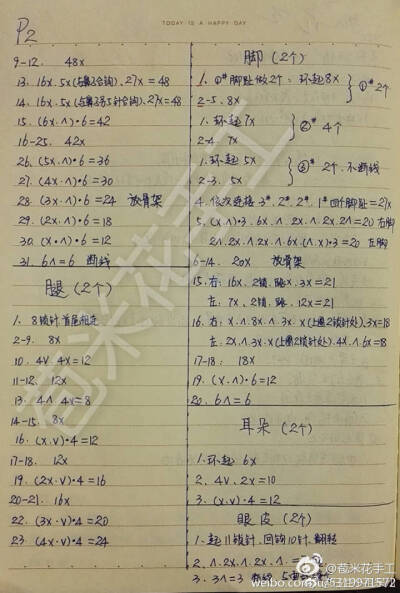 TODAY IS A HAPPY DAY
P2
9-12. 48X
13. 16X.5X(与第2合钩).27X=48
14. 16X.5X(与第3另5针合钩).27X=48
15. (6X.∧)·6=42
16-25. 42X
26. (5X.∧)·6=36
27. (4X.∧)·6=30
28. (3X.∧)·6=24 放骨架
29. (2X.∧)·6=18
30. (X.∧)·6=12
31. 6∧=6 断线
腿(2个)
1. 8锁针首尾相连
2-9. 8X
10. 4V.4X=12
11-12. 12X
13. 4∧.4V=8
14-15. 8X
16. (X.V)·4=12
17-18. 12X
19. (2X.V)·4=16
20-21. 16X
22. (3X.V)·4=20
23. (4X.V)·4=24
脚(2个)
1. ①#脚趾做2个:环起8X
2-5. 8X
①#2个
1. 环起7X
2-4. 7X
②# 4个
1. 环起5X
2-3. 5X
③# 2个.不断线
4. 依次连接3#.2#.2#.1#四个脚趾=27X
5. (X.∧)·3.6X.∧.2X.∧.2X.2∧=20 右脚
2∧.2X.∧.2X.∧.6X.(∧.X)·3=20 左脚
6-14. 20X 放骨架
15. 右:16X.2锁.跳X.3X=21
左:7X.2锁.跳.12X=21
16. 右:X.∧.8X.∧.3X.X(上圈2锁针处).3X=18
左:2X.∧.3X.X(上圈2锁针处).4X.∧.6X=18
17-18: 18X
19. (X.∧)·6=12
20. 6∧=6
耳朵(2个)
1. 环起6X
2. 4V.2X=10
3. (X.V)·4=12
眼皮(2个)
1. 起11锁针.回钩10针.翻转
2. ∧.2X.∧.2X.∧.
3. 3∧=3
苞米花手工
@苞米花手工
weibo.com/u/5319971572